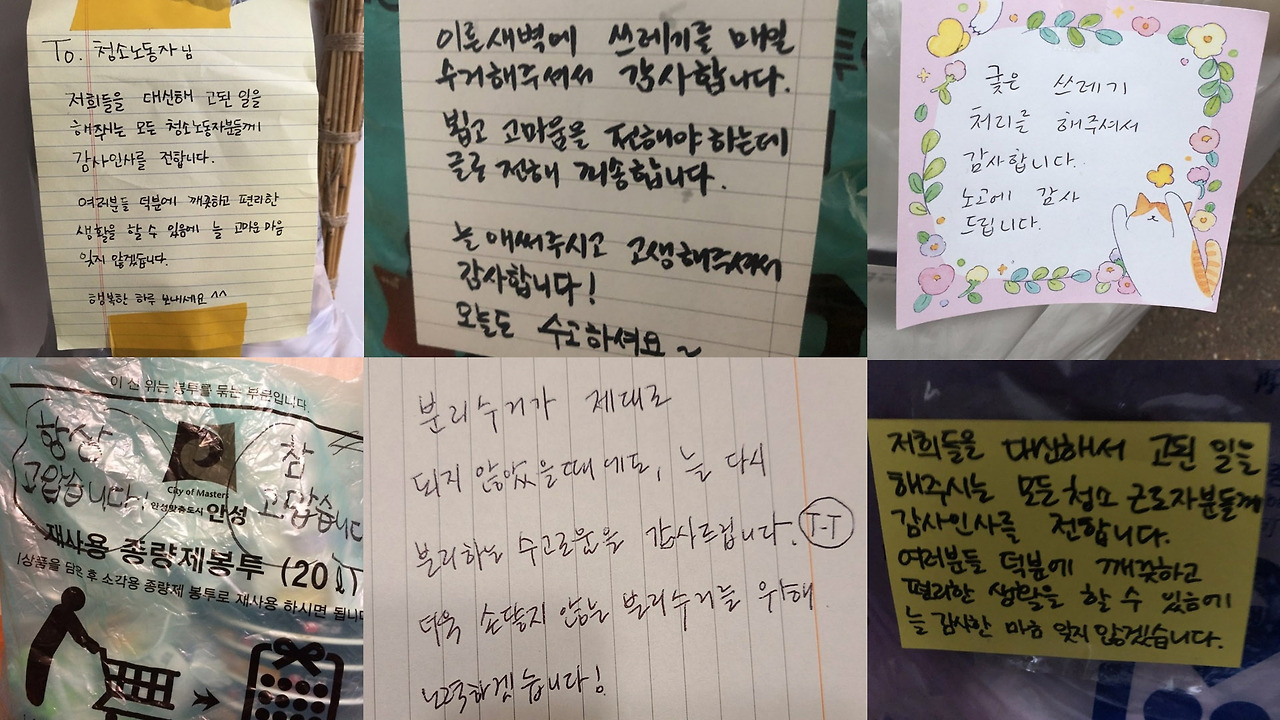 To. 청소노동자님
저희들을 대신해 고된 일을
해주시는 모든 청소노동자분들께
감사인사를 전합니다.
여러분들 덕분에 깨끗하고 편리한
생활을 할 수 있음에 늘 고마운 마음
잊지 않겠습니다.
행복한 하루 보내세요 ^^
이른 새벽에 쓰레기를 매일
수거해주셔서 감사합니다.
뵙고 고마움을 전해야 하는데
글로 전해 죄송합니다.
늘 애써주시고 고생해주셔서
감사합니다!
오늘도 수고하셔요~
궂은 쓰레기
처리를 해주셔서
감사합니다.
노고에 감사
드립니다.
이 선 위는 봉투를 묶는 부분입니다.
항상
고맙습니다!
참
고맙습니다
City of Masters
안성맞춤도시 안성
재사용 종량제봉투 (20ℓ)
(상품을 담은 후 소각용 종량제 봉투로 재사용 하시면 됩니다
분리수거가 제대로
되지 않았을 때에도, 늘 다시
분리하는 수고로움을 감사드립니다. T-T
더욱 손닿지 않는 분리수거를 위해
노력하겠습니다!
저희들을 대신해서 고된 일을
해주시는 모든 청소 근로자분들께
감사인사를 전합니다.
여러분들 덕분에 깨끗하고
편리한 생활을 할 수 있음에
늘 감사한 마음 잊지 않겠습니다.